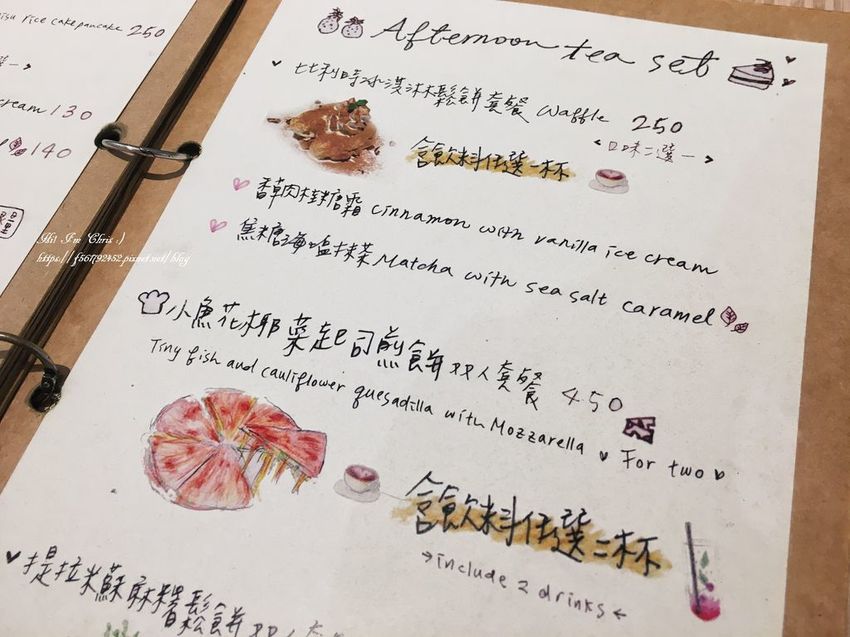 isu rice cake pancake 250
cream 130
140
Afternoon tea set
比利時冰淇淋鬆餅套餐 Waffle 250
口味二選一
含飲料任選一杯
香草肉桂糖霜 cinnamon with vanilla ice cream
焦糖海鹽抹茶 Matcha with sea salt caramel
Hi! I'm Chris :)
https://f561792452.pixnet.net/blog
小魚花椰菜起司煎餅双人套餐 450
Tiny fish and cauliflower quesadilla with Mozzarella For two
含飲料任選二杯
→include 2 drinks←
提拉米蘇麻糬鬆餅双人套